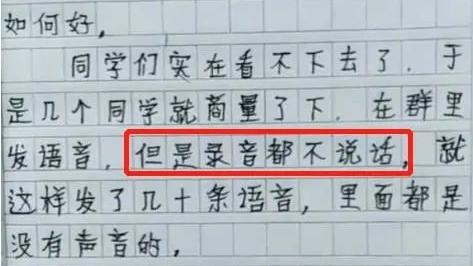 如何好,
同学们实在看不下去了.于
是几个同学就商量了下.在群里
发语音,但是录音都不说话,就
这样发了几十条语音,里面都是
没有声音的,